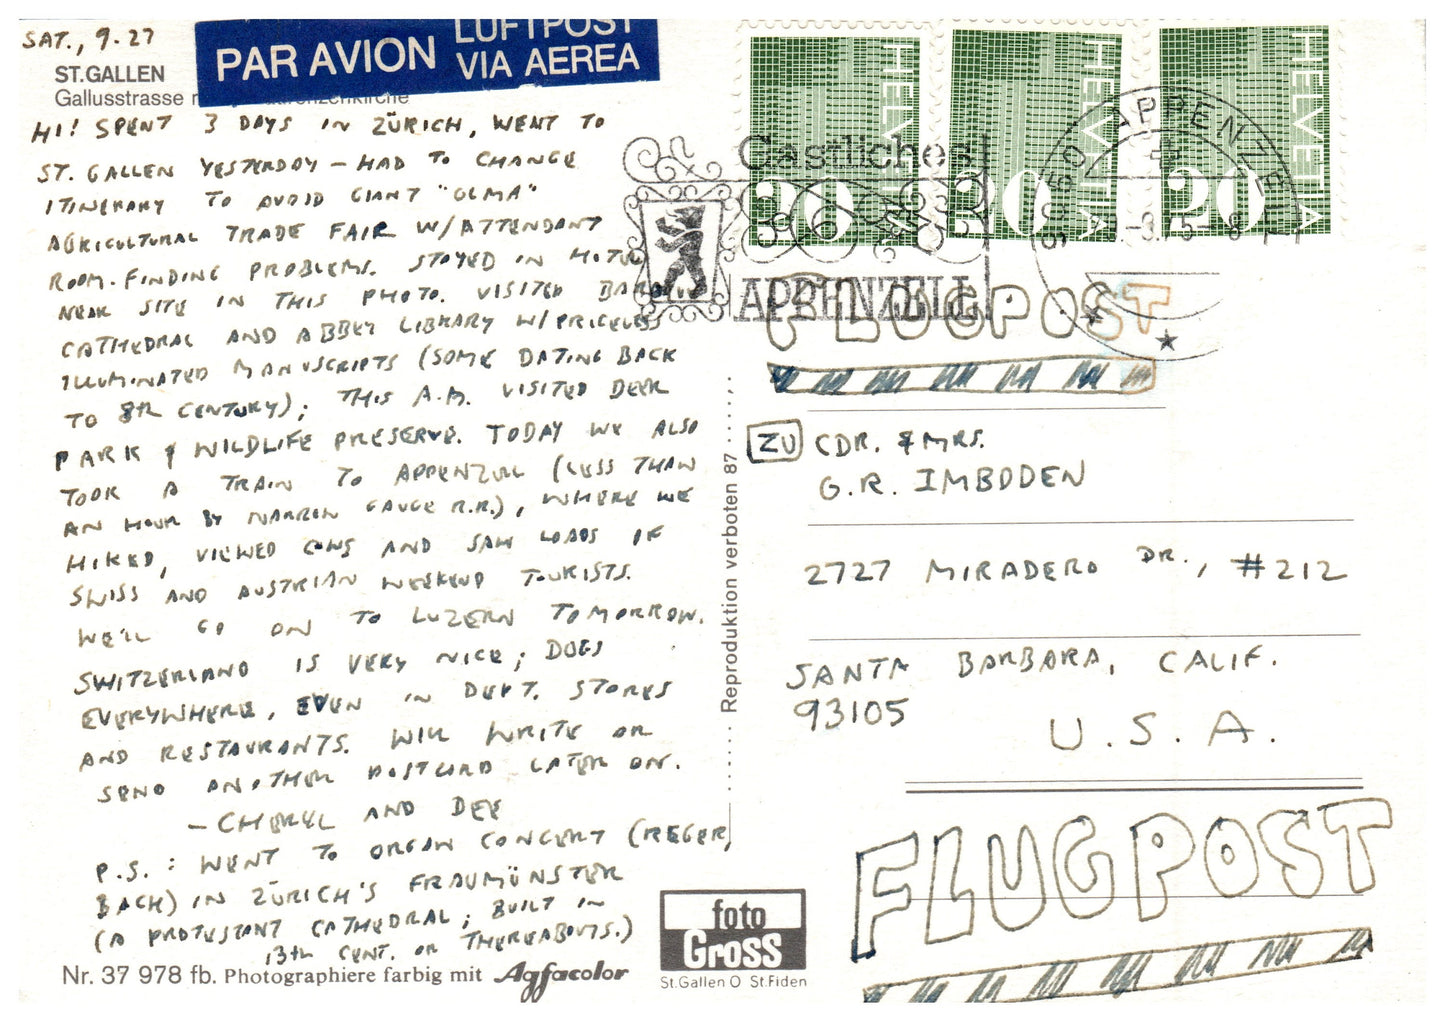 SAT., 9-27
PAR AVION
LUFTPOST
VIA AEREA
ST.GALLEN
Gallusstrasse
HI! SPENT 3 DAYS IN ZÜRICH, WENT TO
ST. GALLEN YESTERDAY – HAD TO CHANGE
ITINERARY TO AVOID GIANT "OLMA"
AGRICULTURAL TRADE FAIR W/ATTENDANT
ROOM-FINDING PROBLEMS. STAYED IN HOTEL
NEAR SITE IN THIS PHOTO. VISITED BAROQUE
CATHEDRAL AND ABBEY LIBRARY W/PRICELESS
ILLUMINATED MANUSCRIPTS (SOME DATING BACK
TO 8TH CENTURY); THIS A.M. VISITED DEER
PARK & WILDLIFE PRESERVE. TODAY WE ALSO
TOOK A TRAIN TO APPENZELL (LESS THAN
AN HOUR BY NARROW GAUGE R.R.), WHERE WE
HIKED, VIEWED COWS AND SAW LOADS OF
SWISS AND AUSTRIAN WEEKEND TOURISTS.
WE'LL GO ON TO LUZERN TOMORROW.
SWITZERLAND IS VERY NICE; DOGS
EVERYWHERE, EVEN IN DEPT. STORES
AND RESTAURANTS. WILL WRITE OR
SEND ANOTHER POSTCARD LATER ON.
– CHERYL AND DEE
P.S.: WENT TO ORGAN CONCERT (REGER,
BACH) IN ZÜRICH'S FRAUMÜNSTER
(A PROTESTANT CATHEDRAL; BUILT IN
13th CENT. OR THEREABOUTS.)
Nr. 37 978 fb. Photographiere farbig mit Agfacolor
Reproduktion verboten 87
foto
Gross
St.Gallen O St.Fiden
HELVETIA
30
HELVETIA
20
HELVETIA
20
Gastliches
APPENZELL
9050 APPENZELL
FLUGPOST
ZU CDR. & MRS.
G.R. IMBODEN
2727 MIRADERO DR., #212
SANTA BARBARA, CALIF.
93105
U.S.A.
FLUGPOST